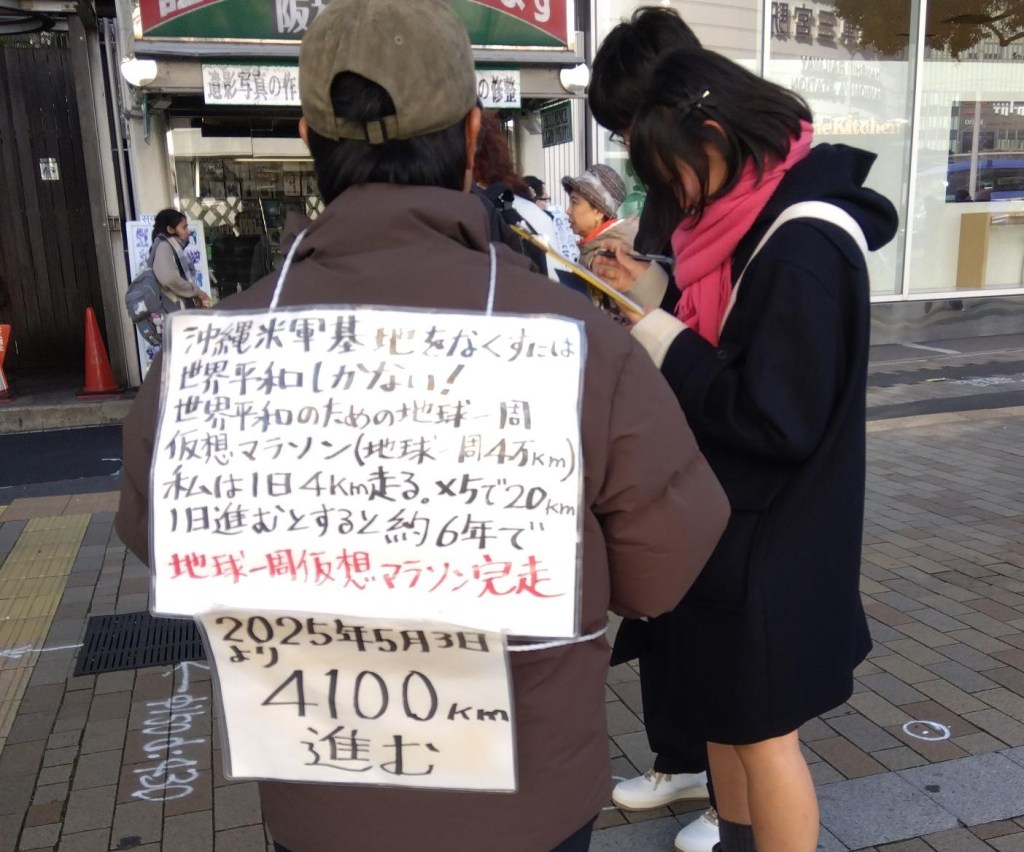 阪
ます
遺影写真の作
の修整
沖縄米軍基地をなくすには
世界平和しかない!
世界平和のための地球一周
仮想マラソン(地球一周4万km)
私は1日4km走る。×5で20km
1日進むとすると約6年で
地球一周仮想マラソン完走
2025年5月3日
より
4100km
進む